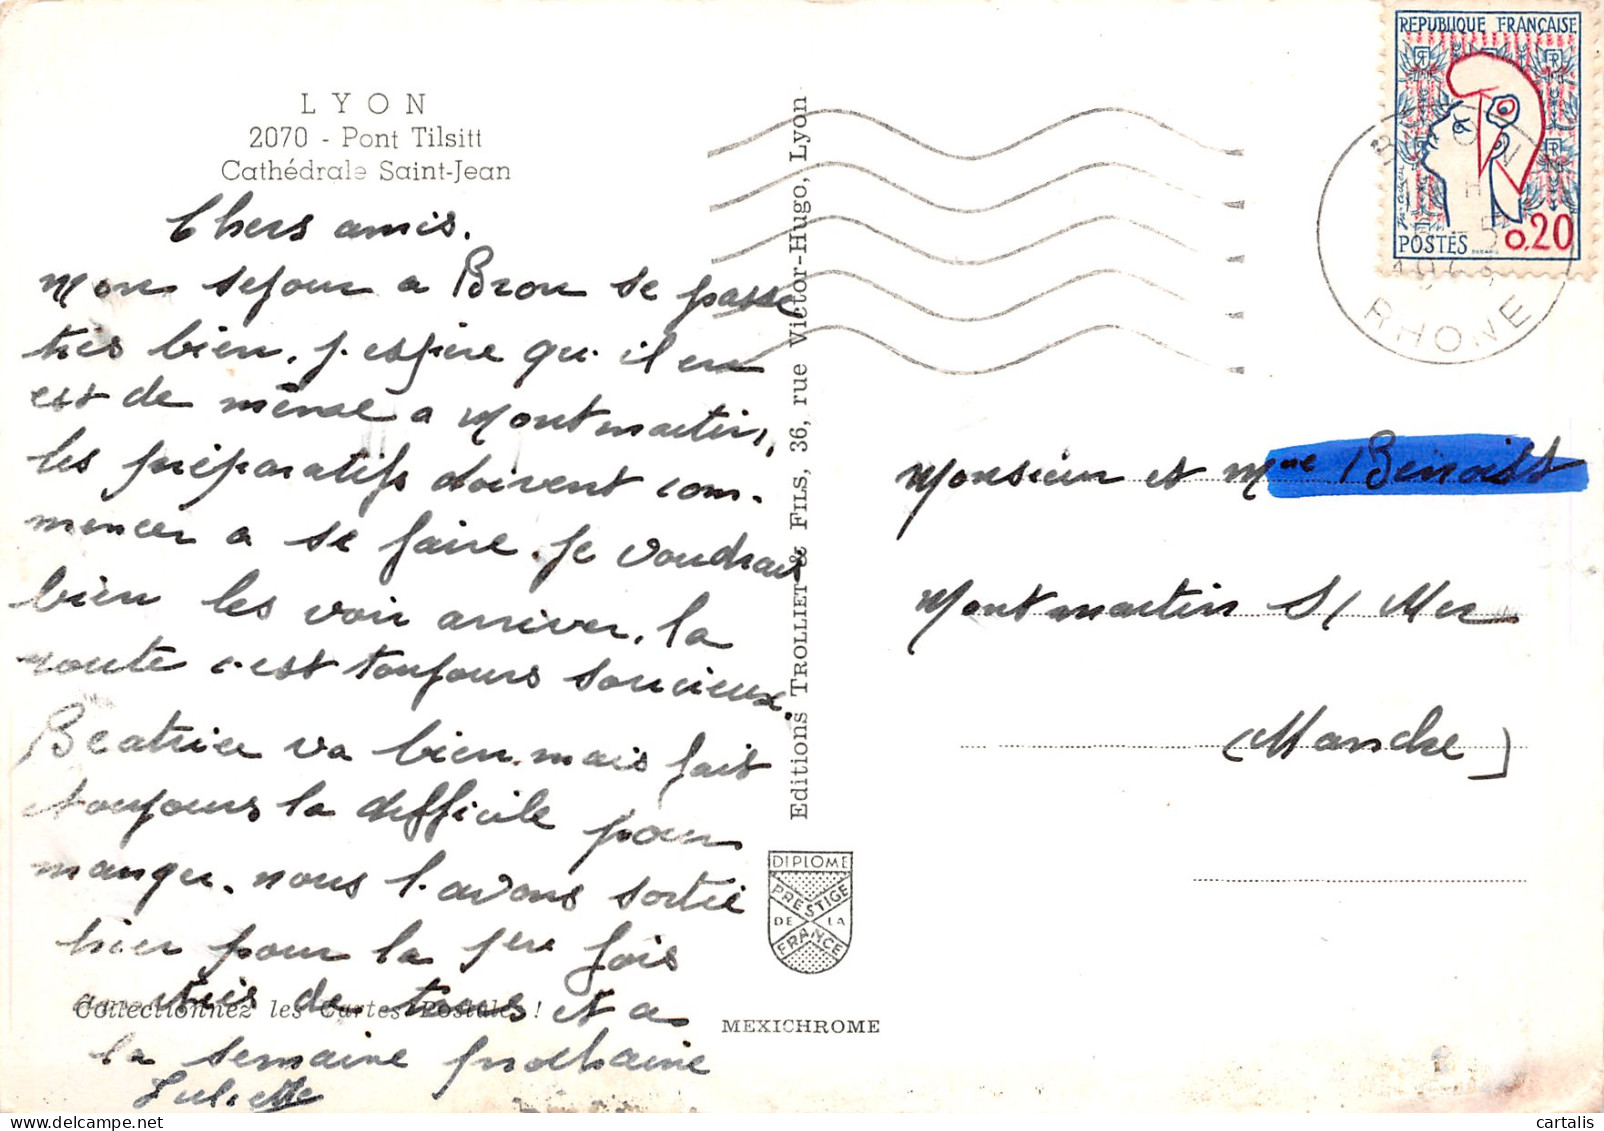 LYON
2070 - Pont Tilsitt
Cathédrale Saint-Jean
Chers amis.
Mon sejour a Bron se passe
très bien, j'espère qu'il en
est de même a Montmartin,
les préparatifs doivent com-
mencer a se faire. Je voudrais
bien les voir arriver, la
route c'est toujours soucieux.
Beatrice va bien mais fait
toujours la difficile pour
manger. nous l'avons sortie
hier pour la 1ère fois
de tous et a
la semaine prochaine
Juliette
Collectionnez les Cartes Postales !
Editions TROLLIET & FILS, 36, rue Victor-Hugo, Lyon
DIPLOME
PRESTIGE
DE LA
FRANCE
MEXICHROME
REPUBLIQUE FRANÇAISE
POSTES 0,20
BRON
RHONE
Monsieur et Mme Benoist
Montmartin S/ Mer
(Manche)
cartalis